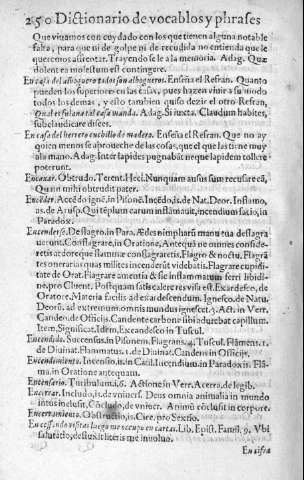 250 Dictionario de vocablos y phrases
Que vivamos con cuydado con los que tienen alguna notable
falta, para que ni de golpe ni de recudida no entienda que le
queremos asrentar. Trayendo se le a la memoria. Adag. Quæ
dolent ea molestum est contingere.
En casa del alboguero todos son albogueros. Enseña el Refran. Quanto
pueden los superiores en las casas, pues hazen vivir a su modo
todos los demas, y esto tambien quiso dezir el otro Refran,
Qual es fulana tal casa manda. Adag. Si iuxta. Claudum habites,
subclaudicare disces.
En casa del herrero cuchillo de madero. Enseña el Refran. Que no ay
quien menos se aproueche de las cosas, que el que las tiene muy
a la mano. Adag. Inter lapides pugnabāt neque lapidem tollere
poterunt.
Encaxar. Obtrudo. Terent. Hecl. Nunquam ausus sum recusare eā,
Quam mihi obtrudit pater.
Encēder. Accēdo ignē, in Pisonē. Incēdo, is. de Nat. Deor. Inflamo,
as. de Arusp. Qui tēplum carum inflamauit, incendium facio, in
Paradox.
Encenderse. Deflagro. in Para. Ædes nimpharū manu tua deflagra
uerunt. Conflagrare, in Oratione, Antequā
retis ardoreque flammæ conflagraretis, Flagro & noctu, Flagrā
res onerarias quas milites incenderāt videbatis. Flagrare cupidi-
tate de Orat. Flagrare amentia & se inflammatum ferri libidi-
nē, pro Cluent. Postquam satis calere res visa est. Exardesco, de
Oratore, Materia facilis ad exardescendum. Ignesco, de Natu.
Deorū, ad extremum omnis mundus ignescet. 3. Act. in Verr.
Candeo, de Officiis. Candente carbone sibi adurebat capillum.
Item, Significat. Idem, Excandesco in Tuscul.
Encendido. Succensus, in Pisonem. Flagrans, 4. Tuscul. Flāmens. 1.
de Diuinat. Flammatus. 1. de Diuinat. Candens in Officijs.
Encendimiento. Incensio, is. in Catil. Incendium in Paradox is. Flā-
ma, in Oratione antequam.
Encensario. Turibulum, i. 6. Actione in Verr. Acerra, de legib.
Encerrar. Includo, is. de vniuers. Deus omnia animalia in mundo
intus inclusit, Cōcludo, de vniuer. Animū cōclusit in corpore.
Encerramiento. Obstructio, is. Cice. pro Sextio.
En cessando visitas luego me occupo en cartas. Lib. Epist. Famil. 9. Vbi
salutatio, defluxit literis me inuoluo.
En cifra